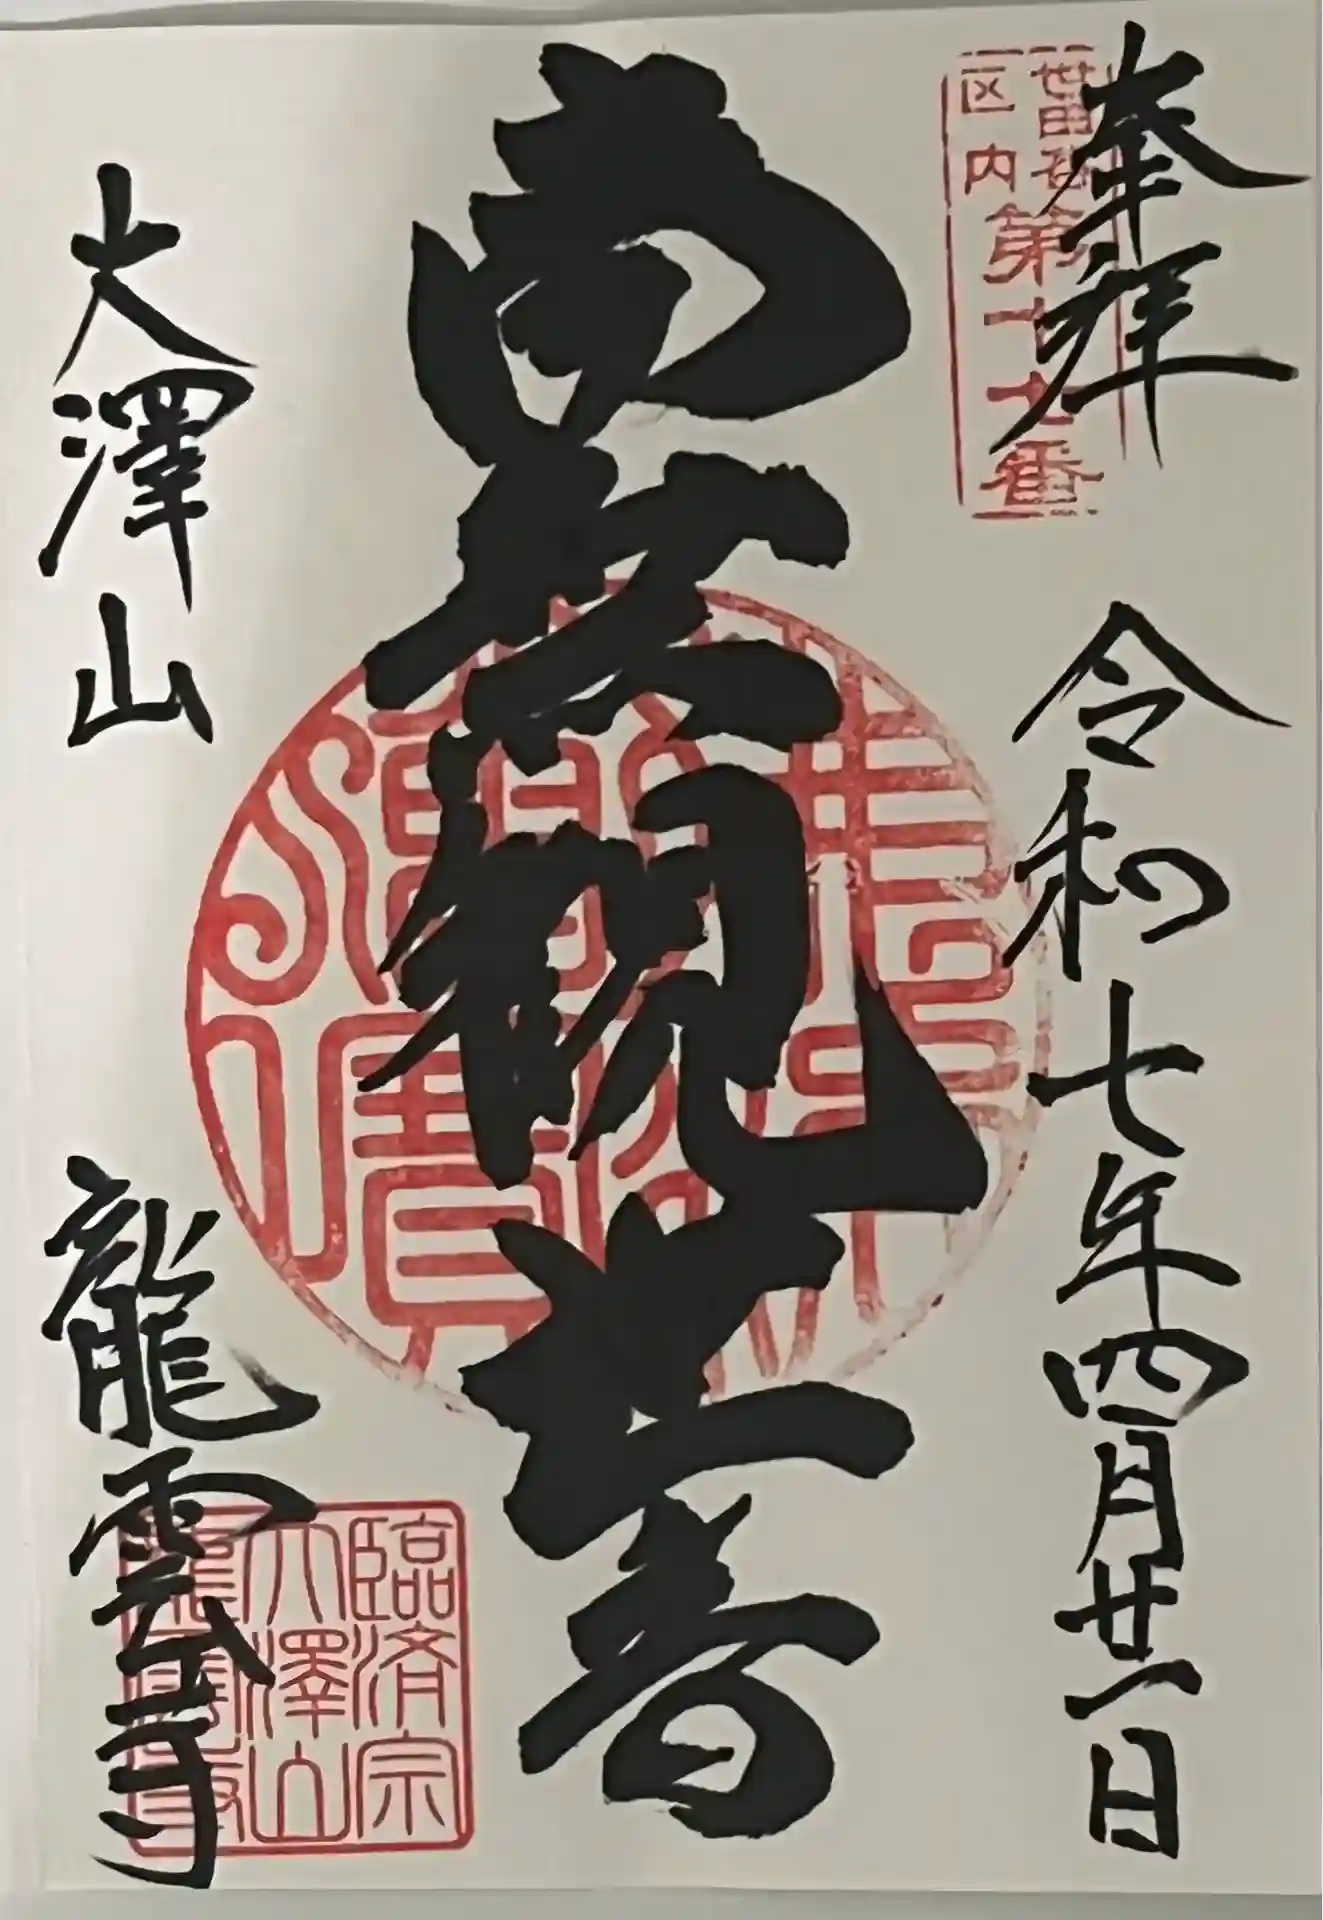 奉拝
世田谷
区内
第十七番
令和七年四月廿一日
南無観世音
佛法僧寶
大澤山
龍雲寺
臨済宗
大澤山
龍雲寺